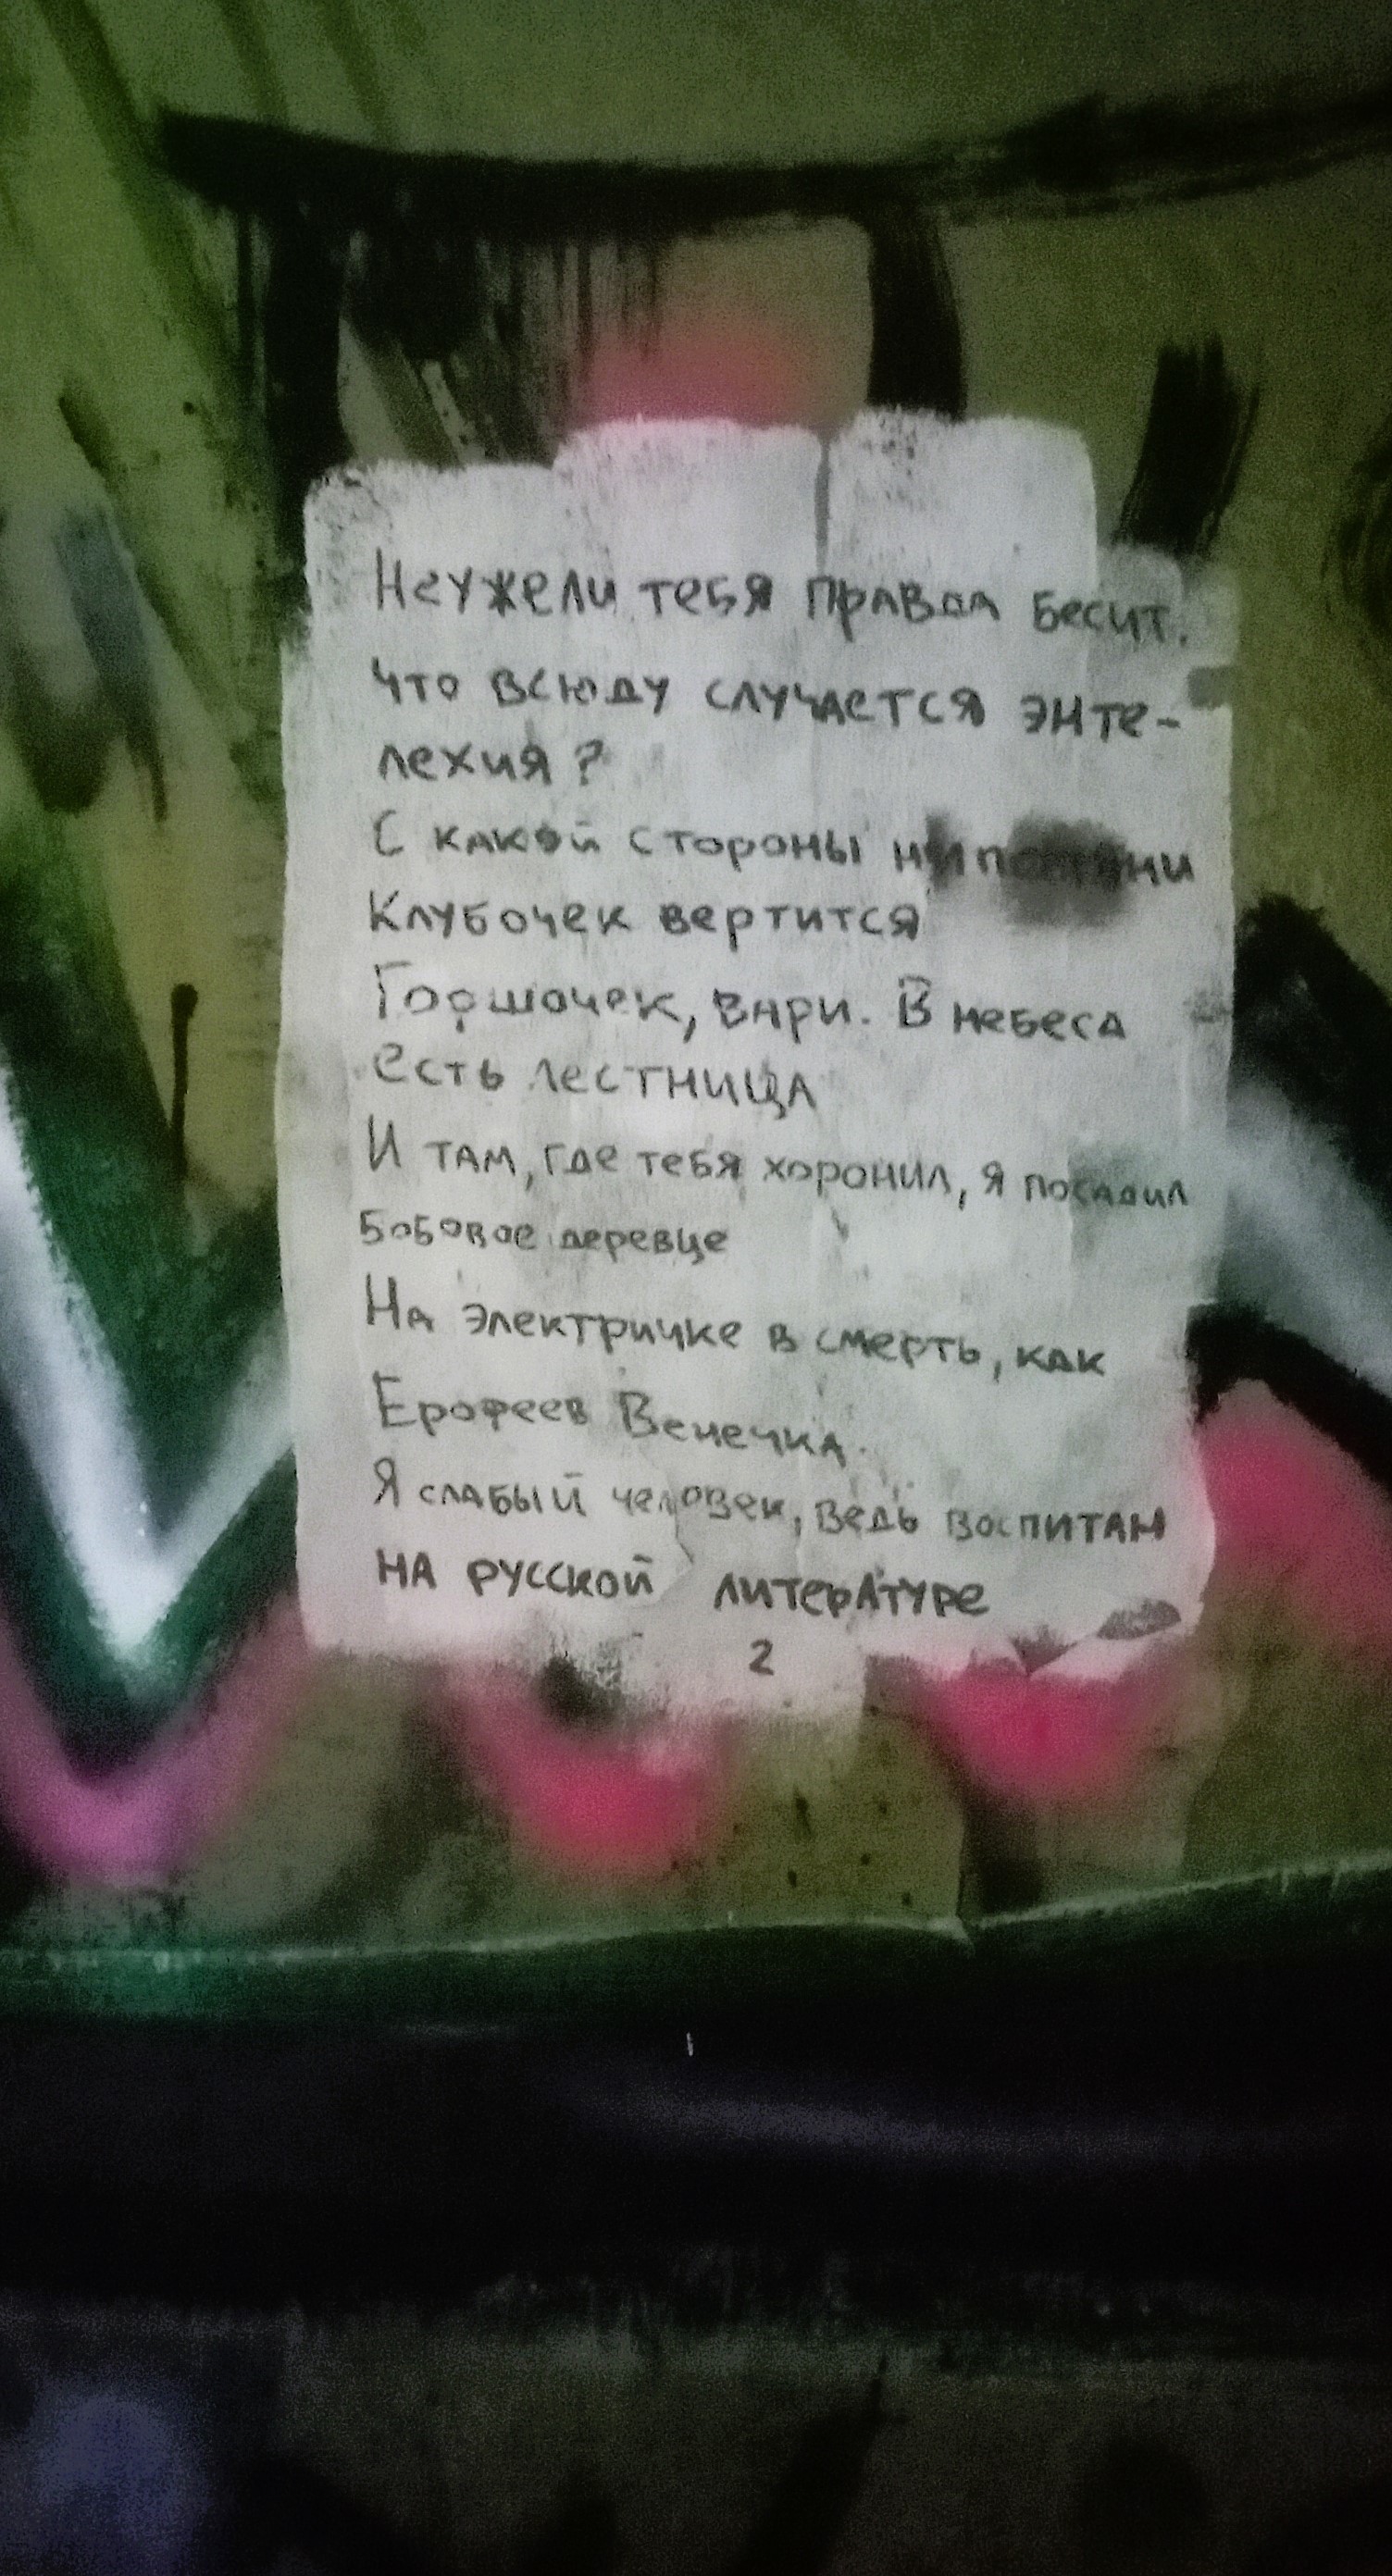 Неужели тебя правда бесит.
что всюду случается энте-
лехия?
С какой стороны ни
Клубочек вертится
Горшочек, вари. В небеса
есть лестница
И там, где тебя хоронил, я посадил
Бобовое деревце
На электричке в смерть, как
Ерофеев Венечка.
Я слабый человек, ведь воспитан
на русской литературе
2